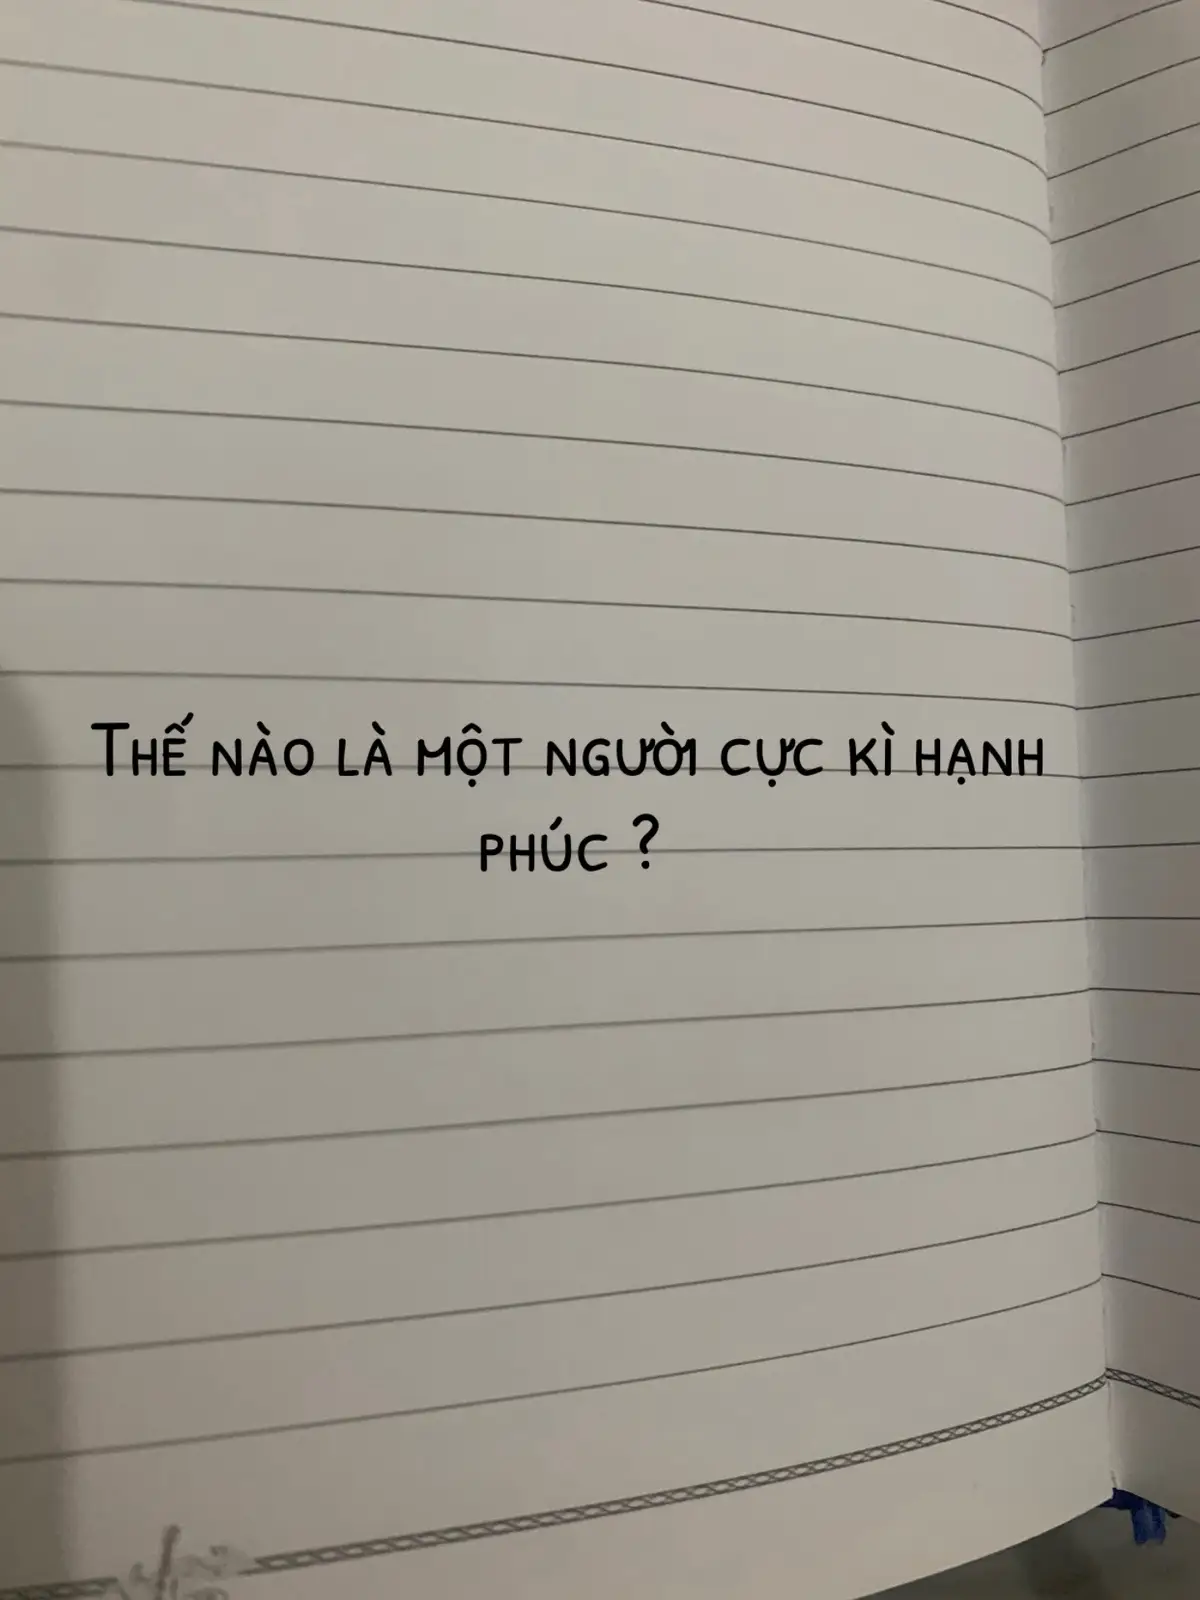 Thế nào là một người cực kì hạnh
phúc ?